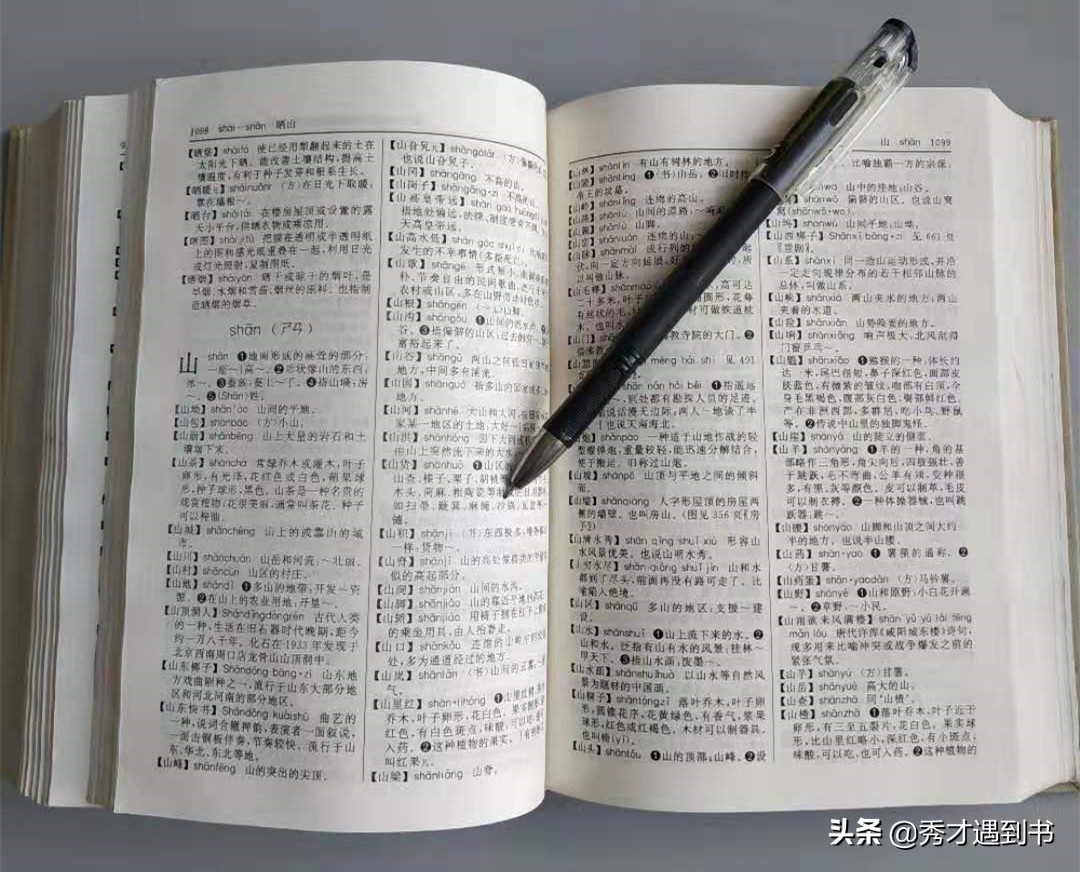 1098 shài－shān 晒山
【晒垡】shàifá 使已经用犁翻起来的土在
太阳光下晒，能改善土壤结构，提高土
壤温度，有利于种子发芽和根系生长。
【晒暖儿】shàinuǎnr〈方〉在日光下取暖，
【晒台】shàitái 在楼房屋顶或设置的露
天小平台，供晒衣物或乘凉用。
【晒图】shài∥tú 把描在透明或半透明纸
上的图和感光纸重叠在一起，利用日光
或灯光照射，复制图纸。
【晒烟】shàiyān 晒干或晾干的烟叶，是
旱烟、水烟和雪茄、烟丝的原料。也指制
造晒烟的烟草。
shān（ㄕㄢ）
山 shān ❶地面形成的高耸的部分：
一座～｜高～。❷形状像山的东西：
冰～。❸蚕蔟：蚕上～了。❹指山墙：房
～。❺（Shān）姓。
【山坳】shān'ào 山间的平地。
【山包】shānbāo〈方〉小山。
【山崩】shānbēng 山上大量的岩石和土
壤塌下来。
【山茶】shānchá 常绿乔木或灌木，叶子
卵形，有光泽，花红色或白色，蒴果球
形，种子球形，黑色。山茶是一种名贵的
观赏植物，花很美丽，通常叫茶花。种子
可以榨油。
【山城】shānchéng 山上的或靠山的城
市。
【山川】shānchuān 山岳和河流：～壮丽。
【山村】shāncūn 山区的村庄。
【山地】shāndì ❶多山的地带：开发～资
源。❷在山上的农业用地：开垦～。
【山顶洞人】Shāndǐngdòngrén 古代人类
的一种，生活在旧石器时代晚期，距今
约一万八千年。化石在1933年发现于
北京西南周口店龙骨山山顶洞中。
【山东梆子】Shāndōng bāng·zi 山东地
方戏曲剧种之一，流行于山东大部分地
区和河北河南的部分地区。
【山东快书】Shāndōng kuàishū 曲艺的
一种，说词合辙押韵，表演者一面叙说，
一面击铜板伴奏，节奏较快。流行于山
东、华北、东北等地。
【山峰】shānfēng 山的突出的尖顶。
【山旮旯儿】shāngālár〈方〉
也说山旮旯子。
【山冈】shāngāng 不高的山。
【山岗子】shāngǎng·zi 不高的山。
【山高皇帝远】shān gāo huángdì
指地处偏远，法律、制度
天高皇帝远。
【山高水低】shān gāo shuǐ dī
发生的不幸事情（多指死亡）。
【山歌】shāngē 形式短小
朴、节奏自由的民间歌曲，
农村或山区，多在山野劳动时歌唱。
【山根】shāngēn
【山沟】shāngōu ❶山间的流水沟。
谷。❸指偏僻的山区：过去的穷～，
富裕起来了。
【山谷】shāngǔ 两山之间低凹
地方，中间多有溪流。
【山国】shānguó 指多山的国家或多山的
地方。
【山河】shānhé 大山和大河，指国家或国
家某一地区的土地：大好～｜
【山洪】shānhóng 因下大雨或
由山上突然流下来的大水。
【山货】shānhuò ❶山区的
山查、榛子、栗子、胡桃
木头、苘麻、粗陶瓷等
如扫帚、簸箕、麻绳、沙锅、瓦盆等：～
铺。
【山积】shānjī〈书〉东西极多，堆得像山
一样：货物～。
【山脊】shānjǐ 山的高处像兽类的脊梁骨
似的高起部分。
【山涧】shānjiàn 山间的水沟。
【山脚】shānjiǎo 山的靠近平地的部分。
【山轿】shānjiào 用椅子捆在杠子上做成
的乘坐用具，由人抬着走。
【山口】shānkǒu 连绵的山岭中的较低
处，多为通道经过的地方。
【山岚】shānlán〈书〉山间的云雾：～
气。
【山里红】shān·lǐhóng ❶
乔木，叶子卵形，花白色。果实
红色，有白色斑点，味酸，可以吃
入药。❷这种植物的果实。‖
叫红果儿。
【山梁】shānliáng 山脊。
山 shān 1099
【山林】shānlín 有山有树林的地方。
【山陵】shānlíng ❶〈书〉山岳。❷旧时指
帝王的坟墓。
【山岭】shānlǐng 连绵的高山。
【山路】shānlù 山间的道路：～
【山麓】shānlù 山脚。
【山峦】shānluán 连绵的山：
【山脉】shānmài 成行列的
伏，向一定方向延展，
以叫做山脉。
【山毛榉】shānmáojǔ
二十多米，叶子
有丝状的毛，
材可做铁道枕
木。也叫水
【山门】
教寺院的大门。❷
指佛教
méng hǎi shì 见491
shān nán hǎi běi ❶指遥远
到处都有勘探人员的足迹。
指说话漫无边际：两人～地谈了半
也说天南海北。
shānpào 一种适于山地作战的轻
型榴弹炮，重量较轻，能迅速分解结合，
便于搬运。旧称过山炮。
【山坡】shānpō 山顶与平地之间的倾斜
面。
【山墙】shānqiáng 人字形屋顶的房屋两
侧的墙壁。也叫房山。（图见356页〖房
子〗）
【山清水秀】shān qīng shuǐ xiù 形容山
水风景优美。也说山明水秀。
【山穷水尽】shān qióng shuǐ jìn 山和水
都到了尽头，前面再没有路可走了。比
喻陷入绝境。
【山区】shānqū 多山的地区：支援～建
设。
【山水】shānshuǐ ❶山上流下来的水。❷
山和水。泛指有山有水的风景：桂林～
甲天下。❸指山水画：泼墨～。
【山水画】shānshuǐhuà 以山水等自然风
景为题材的中国画。
【山桐子】shāntóngzǐ 落叶乔木，叶子卵
形，圆锥花序，花黄绿色，有香气，浆果
球形，红色或红褐色。木材可以制器具。
也叫椅（yī）。
【山头】shāntóu ❶山的顶部；山峰。❷设
比喻独霸一方的宗派：
山中的洼地；山谷。
shānwō 偏僻的山区。也说山窝
窝（shānwō·wo）。
【山坞】shānwù 山间平地；山坳。
【山西梆子】Shānxī bāng·zǐ 见661页
〖晋剧〗。
【山系】shānxì 同一造山运动形成，并沿
一定走向规律分布的若干相邻山脉的
总体，叫做山系。
【山峡】shānxiá 两山夹水的地方；两山
夹着的水道。
【山险】shānxiǎn 山势险要的地方。
【山响】shānxiǎng 响声极大：北风刮得
门窗乒乓～。
【山魈】shānxiāo ❶猕猴的一种，体长约
达一米，尾巴很短，鼻子深红色，面部皮
肤蓝色，有微紫的皱纹，吻部有白须，全
身毛黑褐色，腹部灰白色，臀部鲜红色。
产在非洲西部，多群居，吃小鸟、野鼠
等。❷传说中山里的独脚鬼怪。
【山崖】shānyá 山的陡立的侧面。
【山羊】shānyáng ❶羊的一种，角的基
部略作三角形，角尖向后，四肢强壮，善
于跳跃，毛不弯曲，公羊有须。变种很
多，有黑、灰等颜色。皮可以制革，毛皮
可以制衣褥。❷一种体操器械，也叫跳
跃器：跳～。
【山腰】shānyāo 山脚和山顶之间大约一
半的地方。也说半山腰。
【山药】shān·yao ❶ 薯蓣的通称。❷
〈方〉甘薯。
【山药蛋】shān·yaodàn〈方〉马铃薯。
【山野】shānyě ❶山和原野：小白花开遍
～。❷草野：～小民。
【山雨欲来风满楼】shān yǔ yù lái fēng
mǎn lóu 唐代许浑《咸阳城东楼》诗句，
现多用来比喻冲突或战争爆发之前的
紧张气氛。
【山芋】shānyù〈方〉甘薯。
【山岳】shānyuè 高大的山。
【山查】shānzhā 同‘山楂’。
【山楂】shānzhā ❶落叶乔木，叶子近于
卵形，有三至五裂片，花白色。果实球
形，比山里红略小，深红色，有小斑点，
味酸，可以吃，也可入药。❷这种植物的
头条 @秀才遇到书